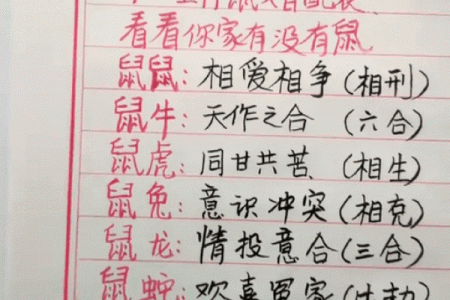 看看你家有没有鼠
鼠鼠：相爱相争（相刑）
鼠牛：天作之合（六合）
鼠虎：同甘共苦（相生）
鼠兔：意识冲突（相克）
鼠龙：情投意合（三合）
鼠蛇：欢喜冤家